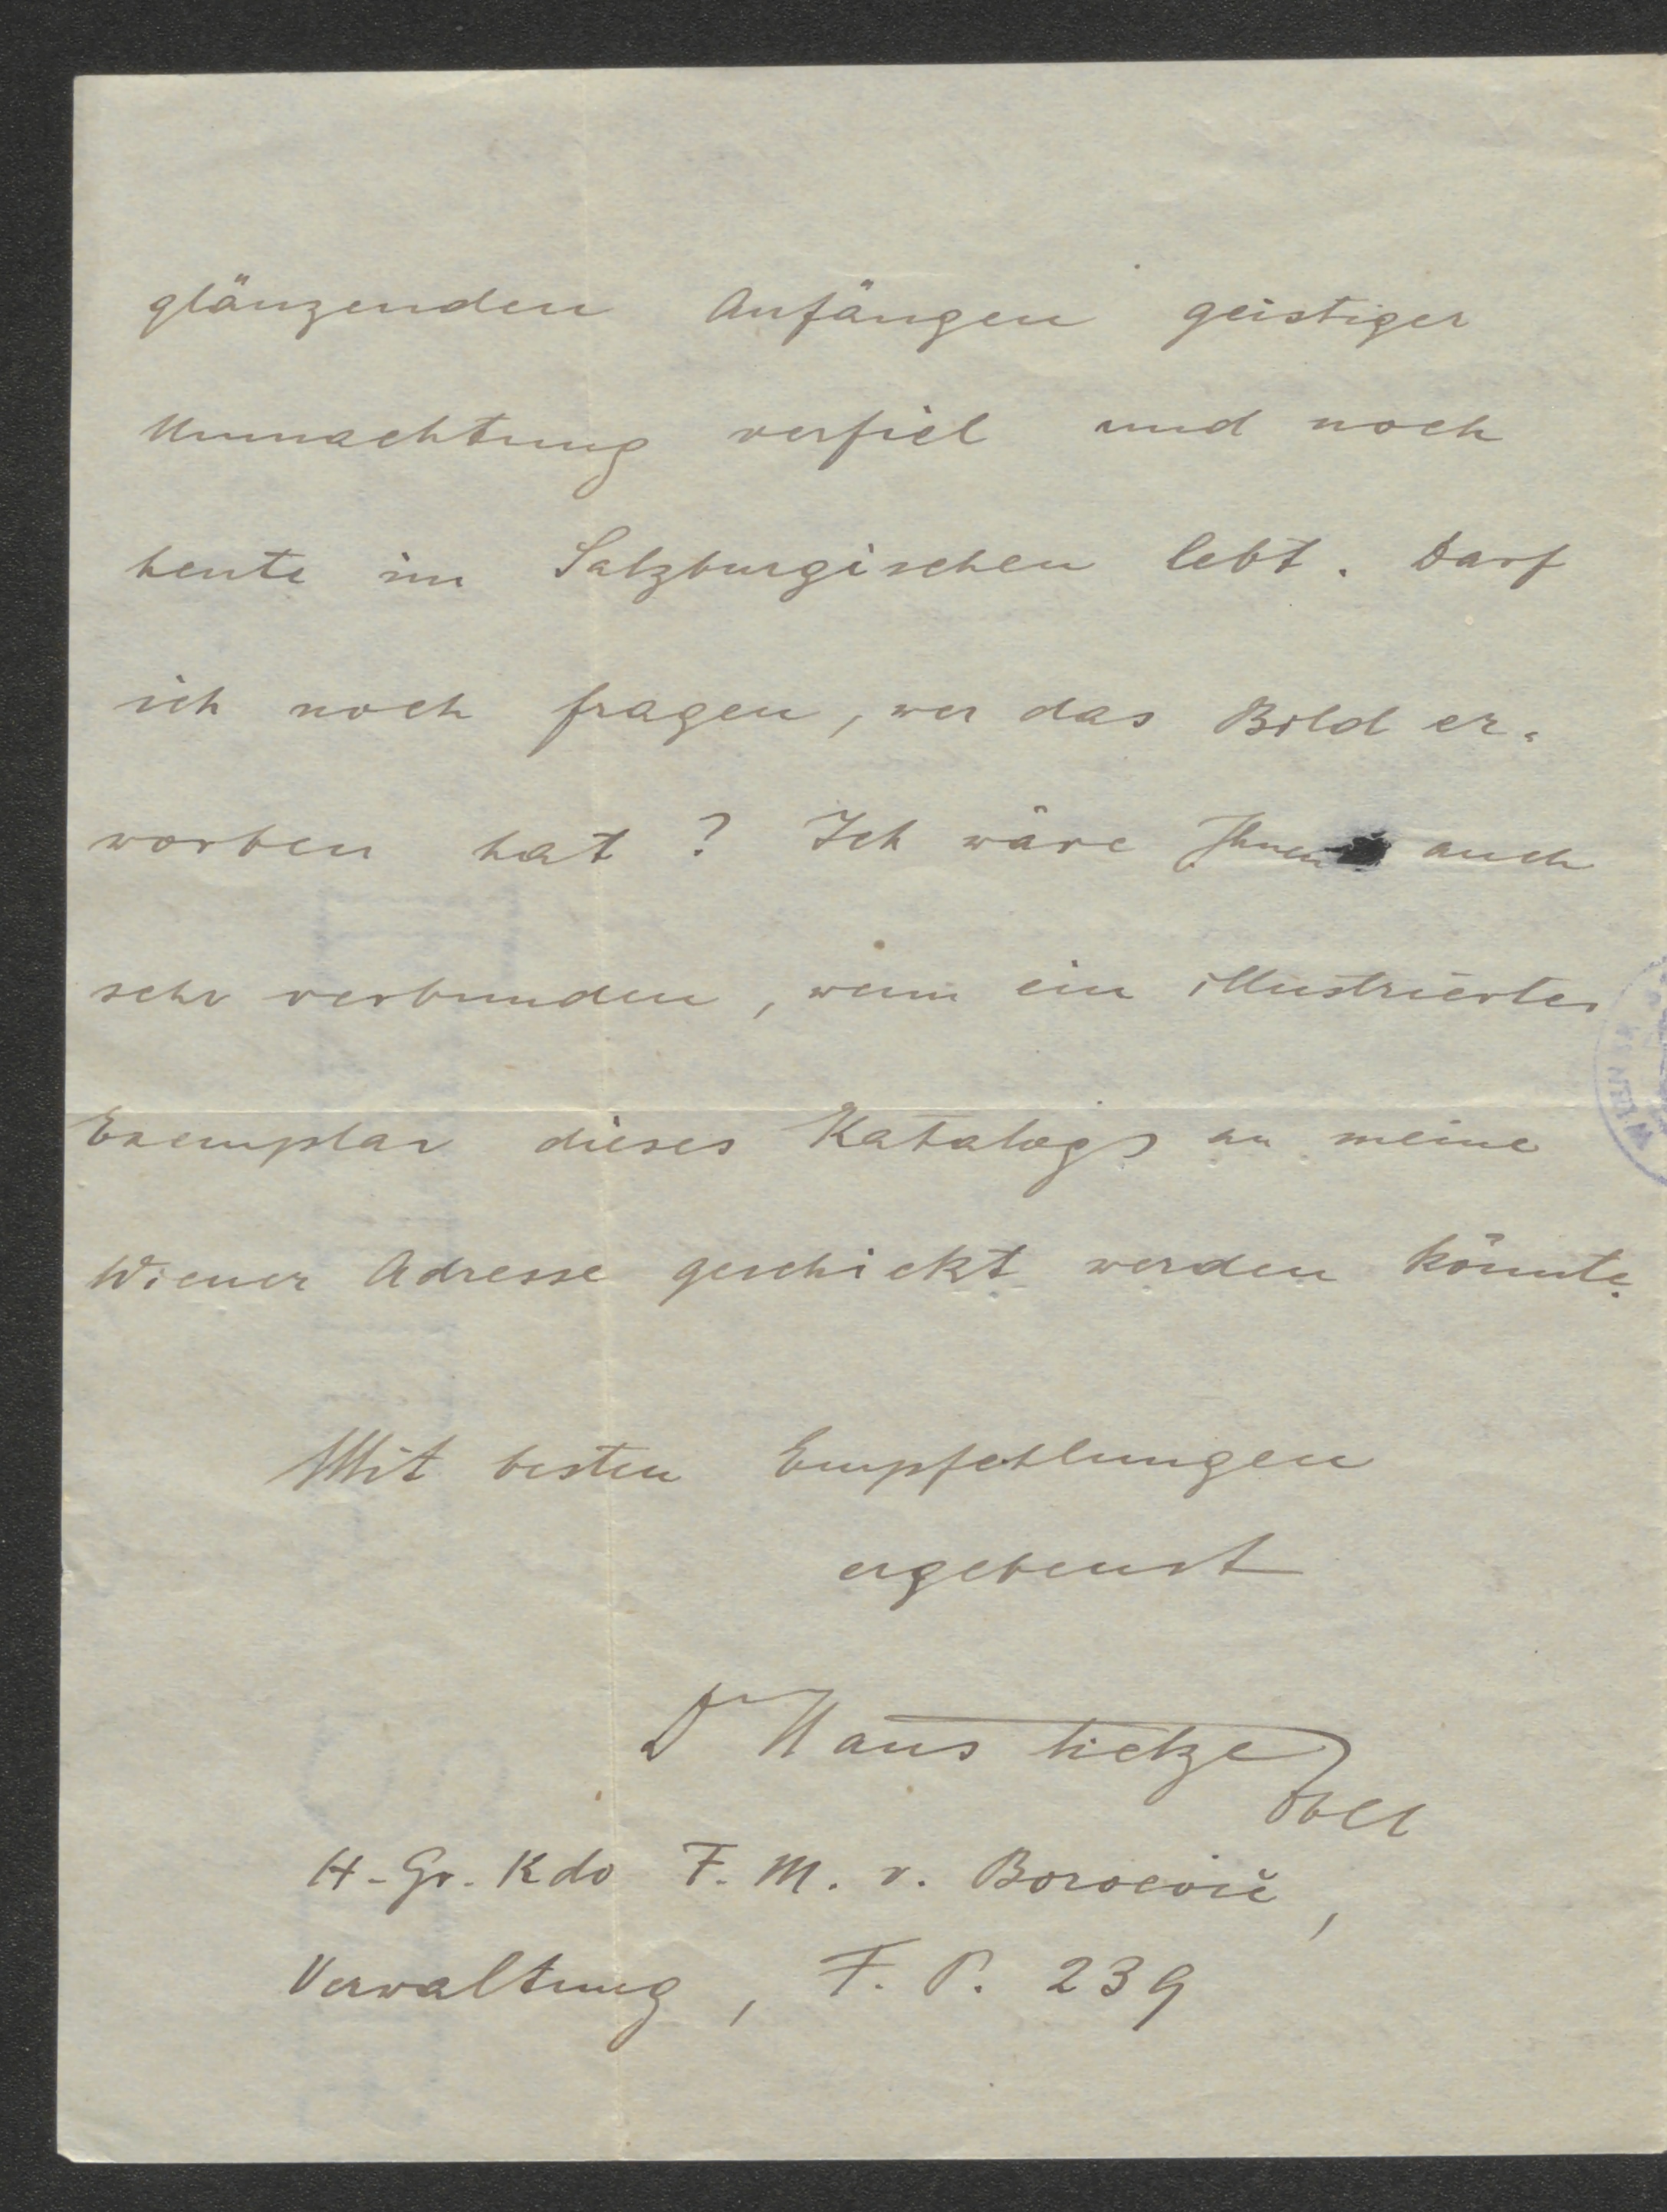 glänzenden Anfängen geistiger
Umnachtung verfiel und noch
heute im Salzburgischen lebt. Darf
ich noch fragen, wer das Bild er-
worben hat? Ich wäre Ihnen auch
sehr verbunden, wenn ein illustriertes
Exemplar dieses Katalogs an meine
Wiener Adresse geschickt werden könnte.
Mit besten Empfehlungen
ergebenst
Dr Hans Tietze
Oblt
H.-Gr. Kdo F. M. v. Boroević,
Verwaltung, F. P. 239